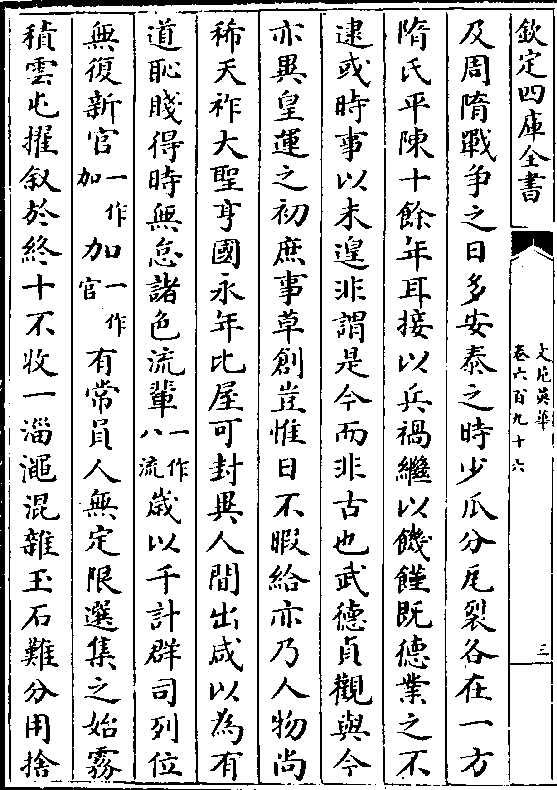 欽定四庫全書
文苑英華
卷六百九十六
三
及周隋戰争之日多安泰之時少瓜分瓦裂各在一方
隋氏平陳十餘年耳接以兵禍繼以饑饉既德業之不
逮或時事以未遑非謂是今而非古也武德貞觀與今
亦異皇運之初庶事草創豈惟日不暇給亦乃人物尚
稀天祚大聖亨國永年比屋可封異人間出咸以為有
道恥賤得時無怠諸色流輩一作八流嵗以千計群司列位
無復新官一作加加一作官有常員人無定限選集之始霧
積雲屯擢叙於終十不收一淄澠混雜玉石難分用捨